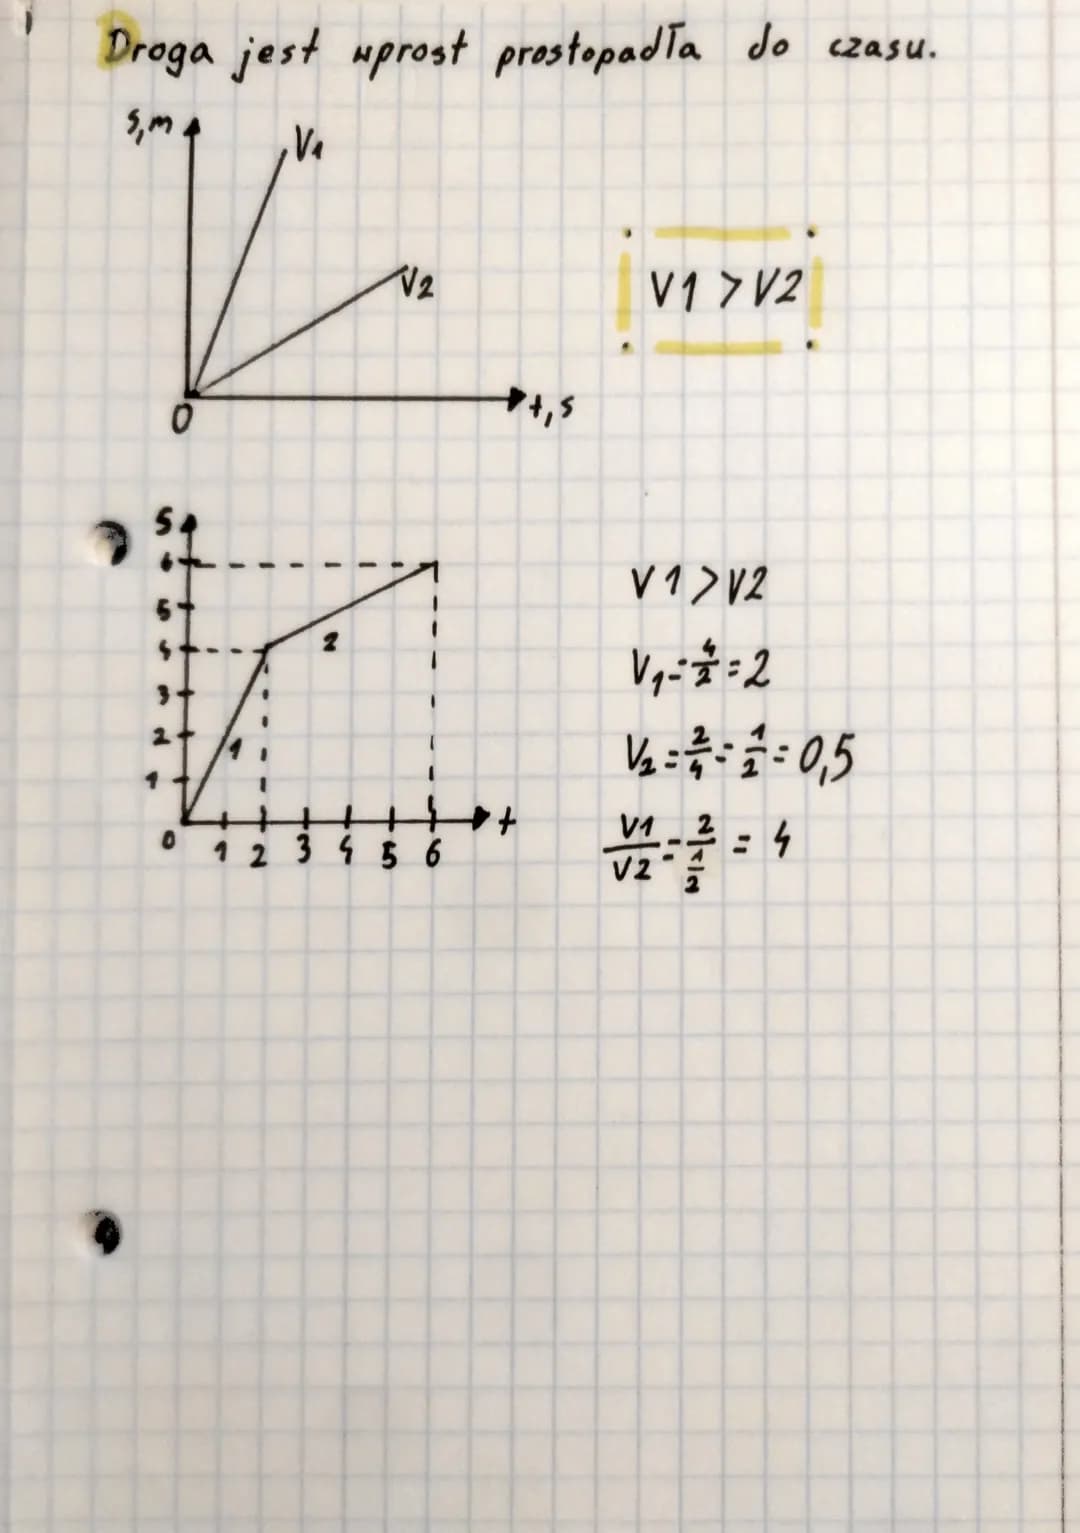 Droga jest wprost prostopadła do czasu.
s,m
V1
V2
V1 > V2
0
t,s
s
6
5
4
3
2
1
0
1 2 3 4 5 6
t
1
2
V1 > V2
V1 = 4/2 = 2
V2 = 2/4 = 1/2 = 0,5
V1/V2 = 2/(1/2) = 4